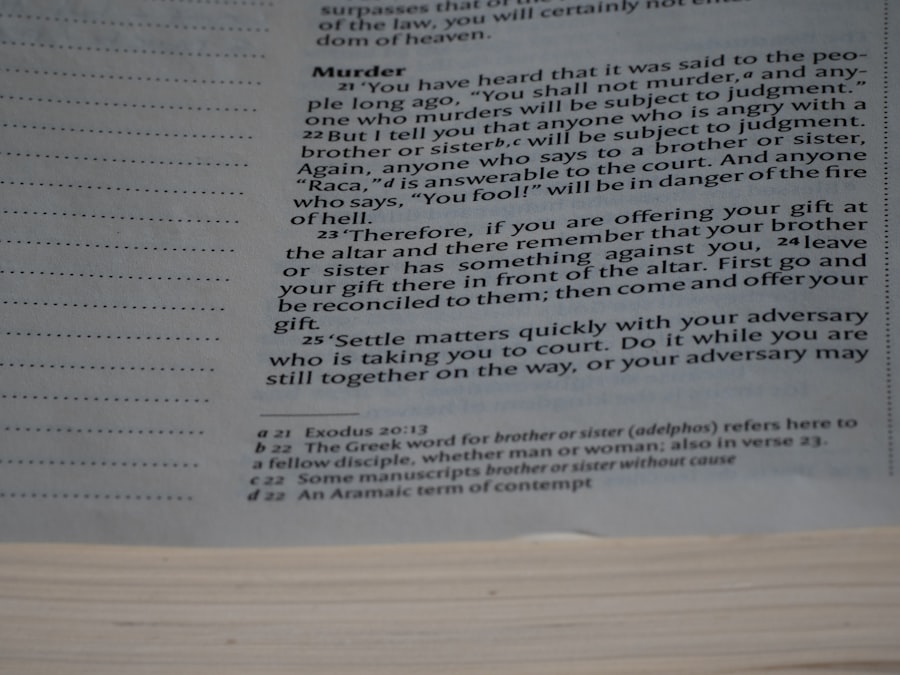 surpasses that of the
of the law, you will certainly not
dom of heaven.
Murder
21 ‘You have heard that it was said to the peo-
ple long ago, “You shall not murder,a and any-
one who murders will be subject to judgment.”
22 But I tell you that anyone who is angry with a
brother or sisterb,c will be subject to judgment.
Again, anyone who says to a brother or sister,
“Raca,”d is answerable to the court. And anyone
who says, “You fool!” will be in danger of the fire
of hell.
23 ‘Therefore, if you are offering your gift at
the altar and there remember that your brother
or sister has something against you, 24 leave
your gift there in front of the altar. First go and
be reconciled to them; then come and offer your
gift.
25 ‘Settle matters quickly with your adversary
who is taking you to court. Do it while you are
still together on the way, or your adversary may
a 21 Exodus 20:13
b 22 The Greek word for brother or sister (adelphos) refers here to
a fellow disciple, whether man or woman; also in verse 23.
c 22 Some manuscripts brother or sister without cause
d 22 An Aramaic term of contempt